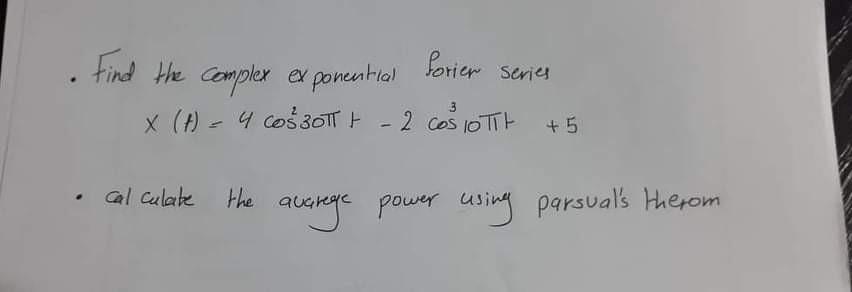 . Find the complex exponential forier series
x (t) = 4 cos² 30π t - 2 cos³ 10π t + 5
. calculate the avarege power using parsval's therom